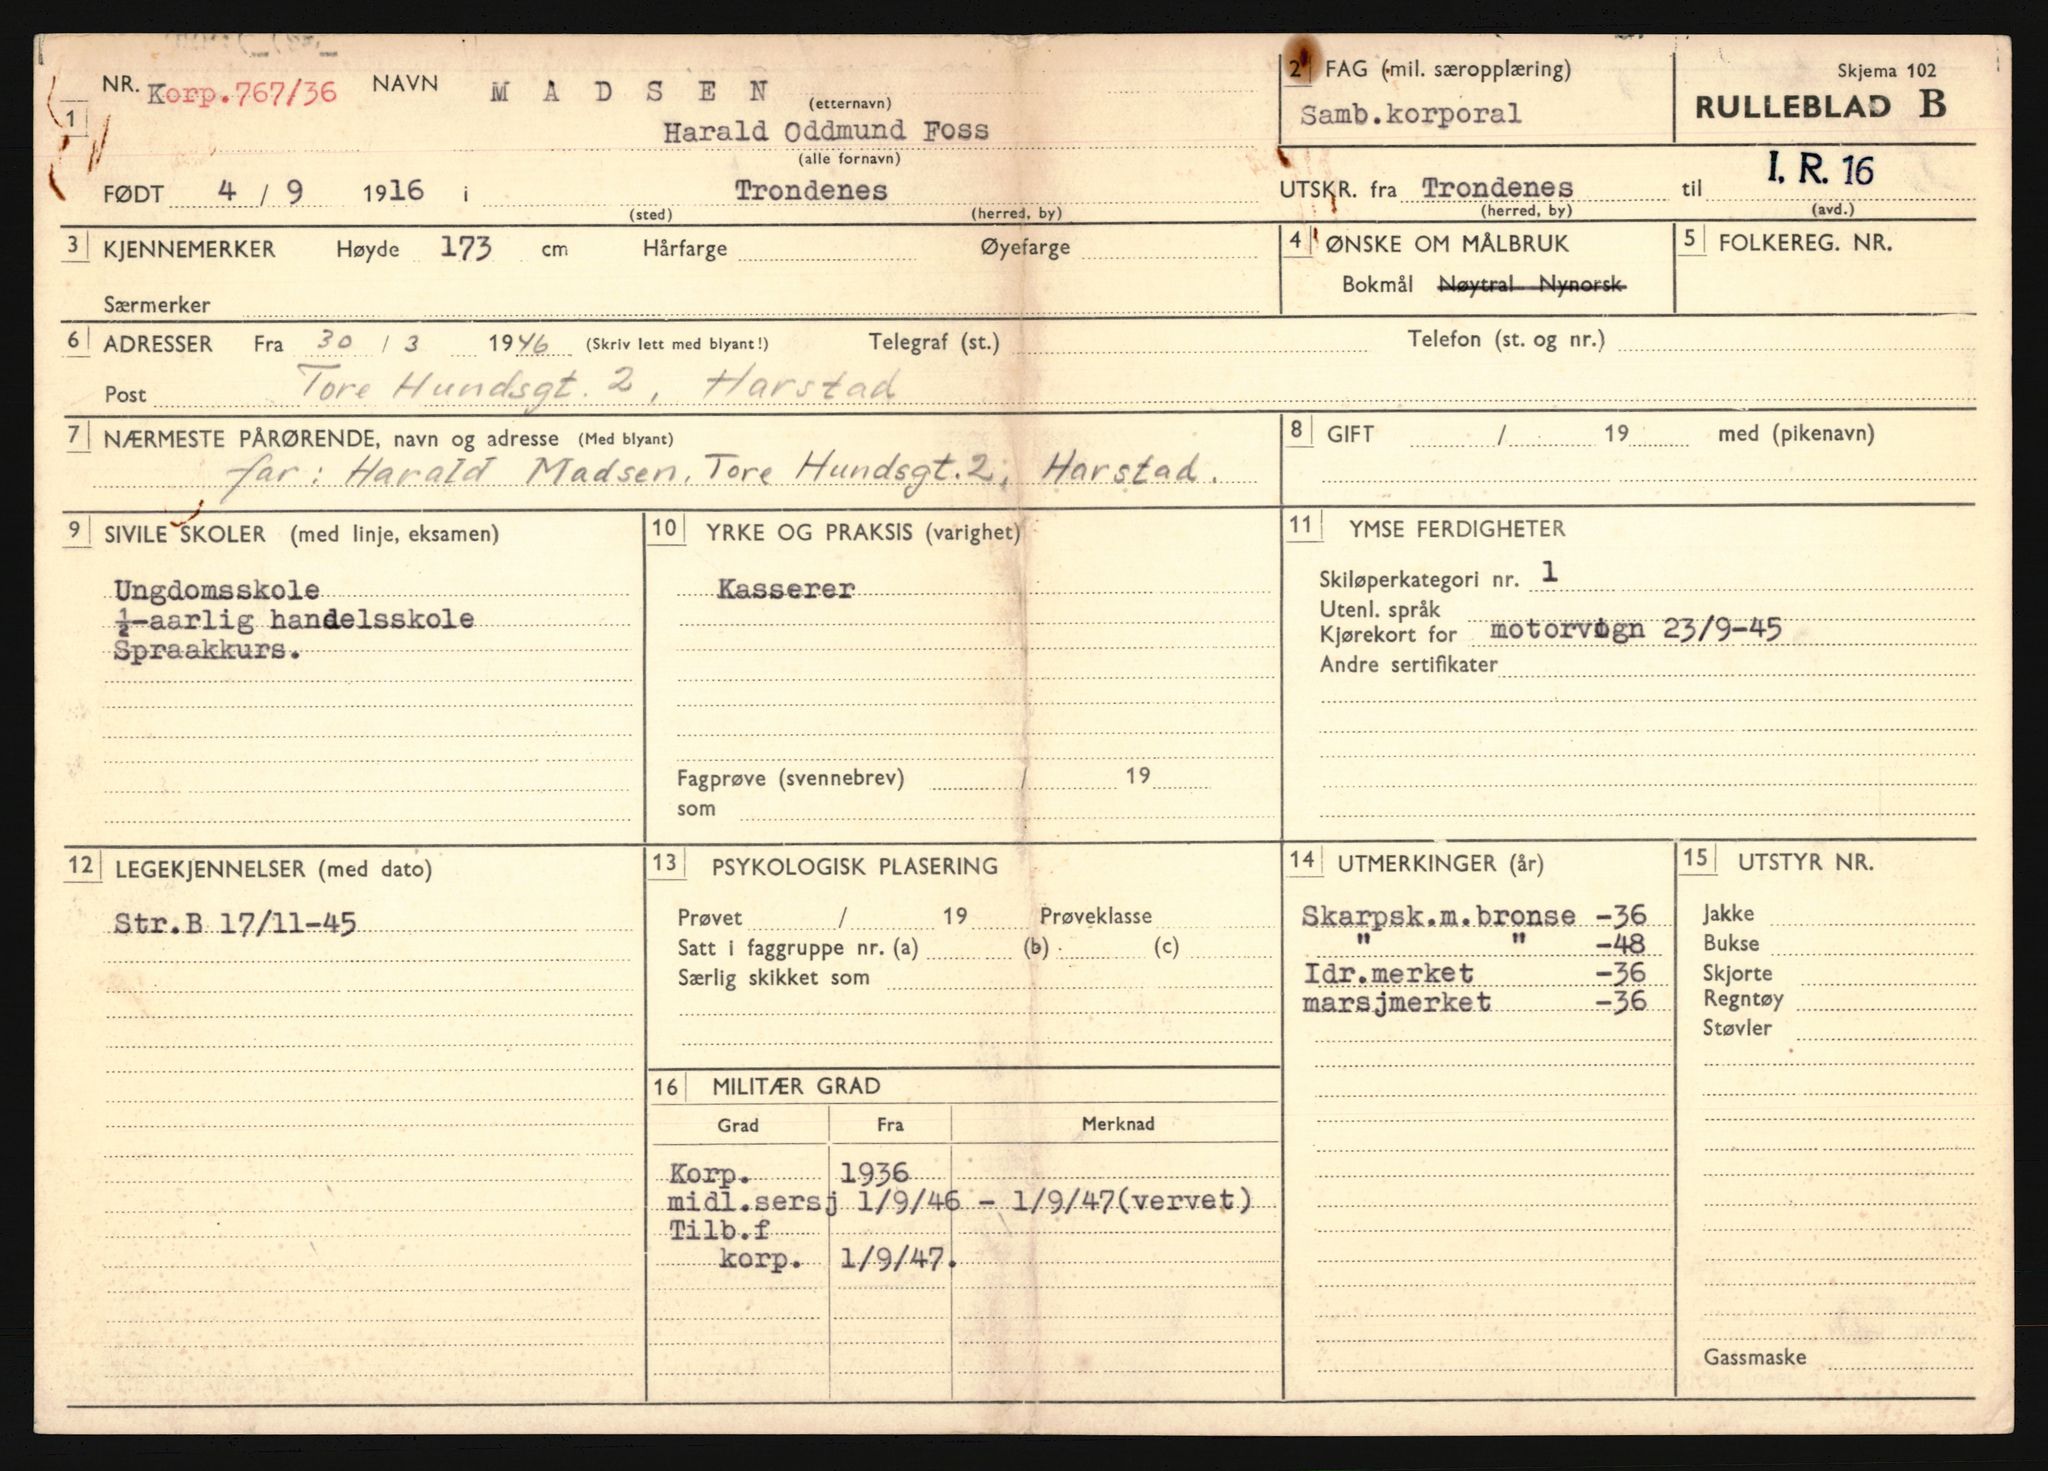 NR. Korp.767/36 NAVN M A D S E N (etternavn)
1
Harald Oddmund Foss
(alle fornavn)
FØDT 4 / 9 1916 i Trondenes
(sted) (herred, by)
2 FAG (mil. særopplæring)
Samb.korporal
Skjema 102
RULLEBLAD B
UTSKR. fra Trondenes til I. R. 16
(herred, by) (avd.)
3 KJENNEMERKER Høyde 173 cm Hårfarge Øyefarge
Særmerker
4 ØNSKE OM MÅLBRUK
Bokmål Nøytral Nynorsk
5 FOLKEREG. NR.
6 ADRESSER Fra 30 / 3 1946 (Skriv lett med blyant!) Telegraf (st.) Telefon (st. og nr.)
Post Tore Hundsgt. 2, Harstad
7 NÆRMESTE PÅRØRENDE, navn og adresse (Med blyant)
far: Harald Madsen, Tore Hundsgt. 2, Harstad.
8 GIFT / 19 med (pikenavn)
9 SIVILE SKOLER (med linje, eksamen)
Ungdomsskole
½-aarlig handelsskole
Spraakkurs.
10 YRKE OG PRAKSIS (varighet)
Kasserer
Fagprøve (svennebrev) / 19
som
11 YMSE FERDIGHETER
Skiløperkategori nr. 1
Utenl. språk
Kjørekort for motorvogn 23/9-45
Andre sertifikater
12 LEGEKJENNELSER (med dato)
Str.B 17/11-45
13 PSYKOLOGISK PLASERING
Prøvet / 19 Prøveklasse
Satt i faggruppe nr. (a) (b) (c)
Særlig skikket som
14 UTMERKINGER (år)
Skarpsk.m.bronse -36
" " -48
Idr.merket -36
marsjmerket -36
15 UTSTYR NR.
Jakke
Bukse
Skjorte
Regntøy
Støvler
Gassmaske
16 MILITÆR GRAD
Grad Fra Merknad
Korp. 1936
midl.sersj 1/9/46 - 1/9/47(vervet)
Tilb.f
korp. 1/9/47.